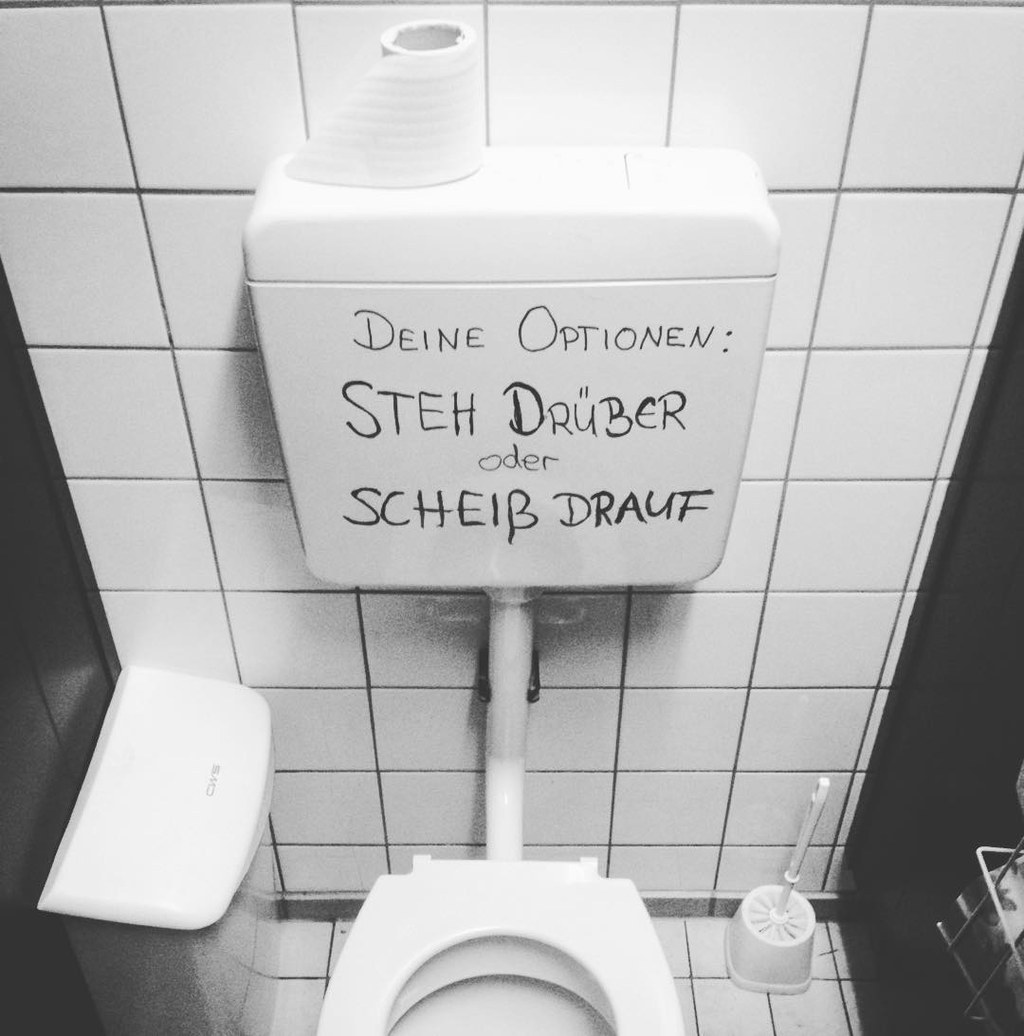 DEINE OPTIONEN:
STEH DRÜBER
oder
SCHEIß DRAUF
CWS